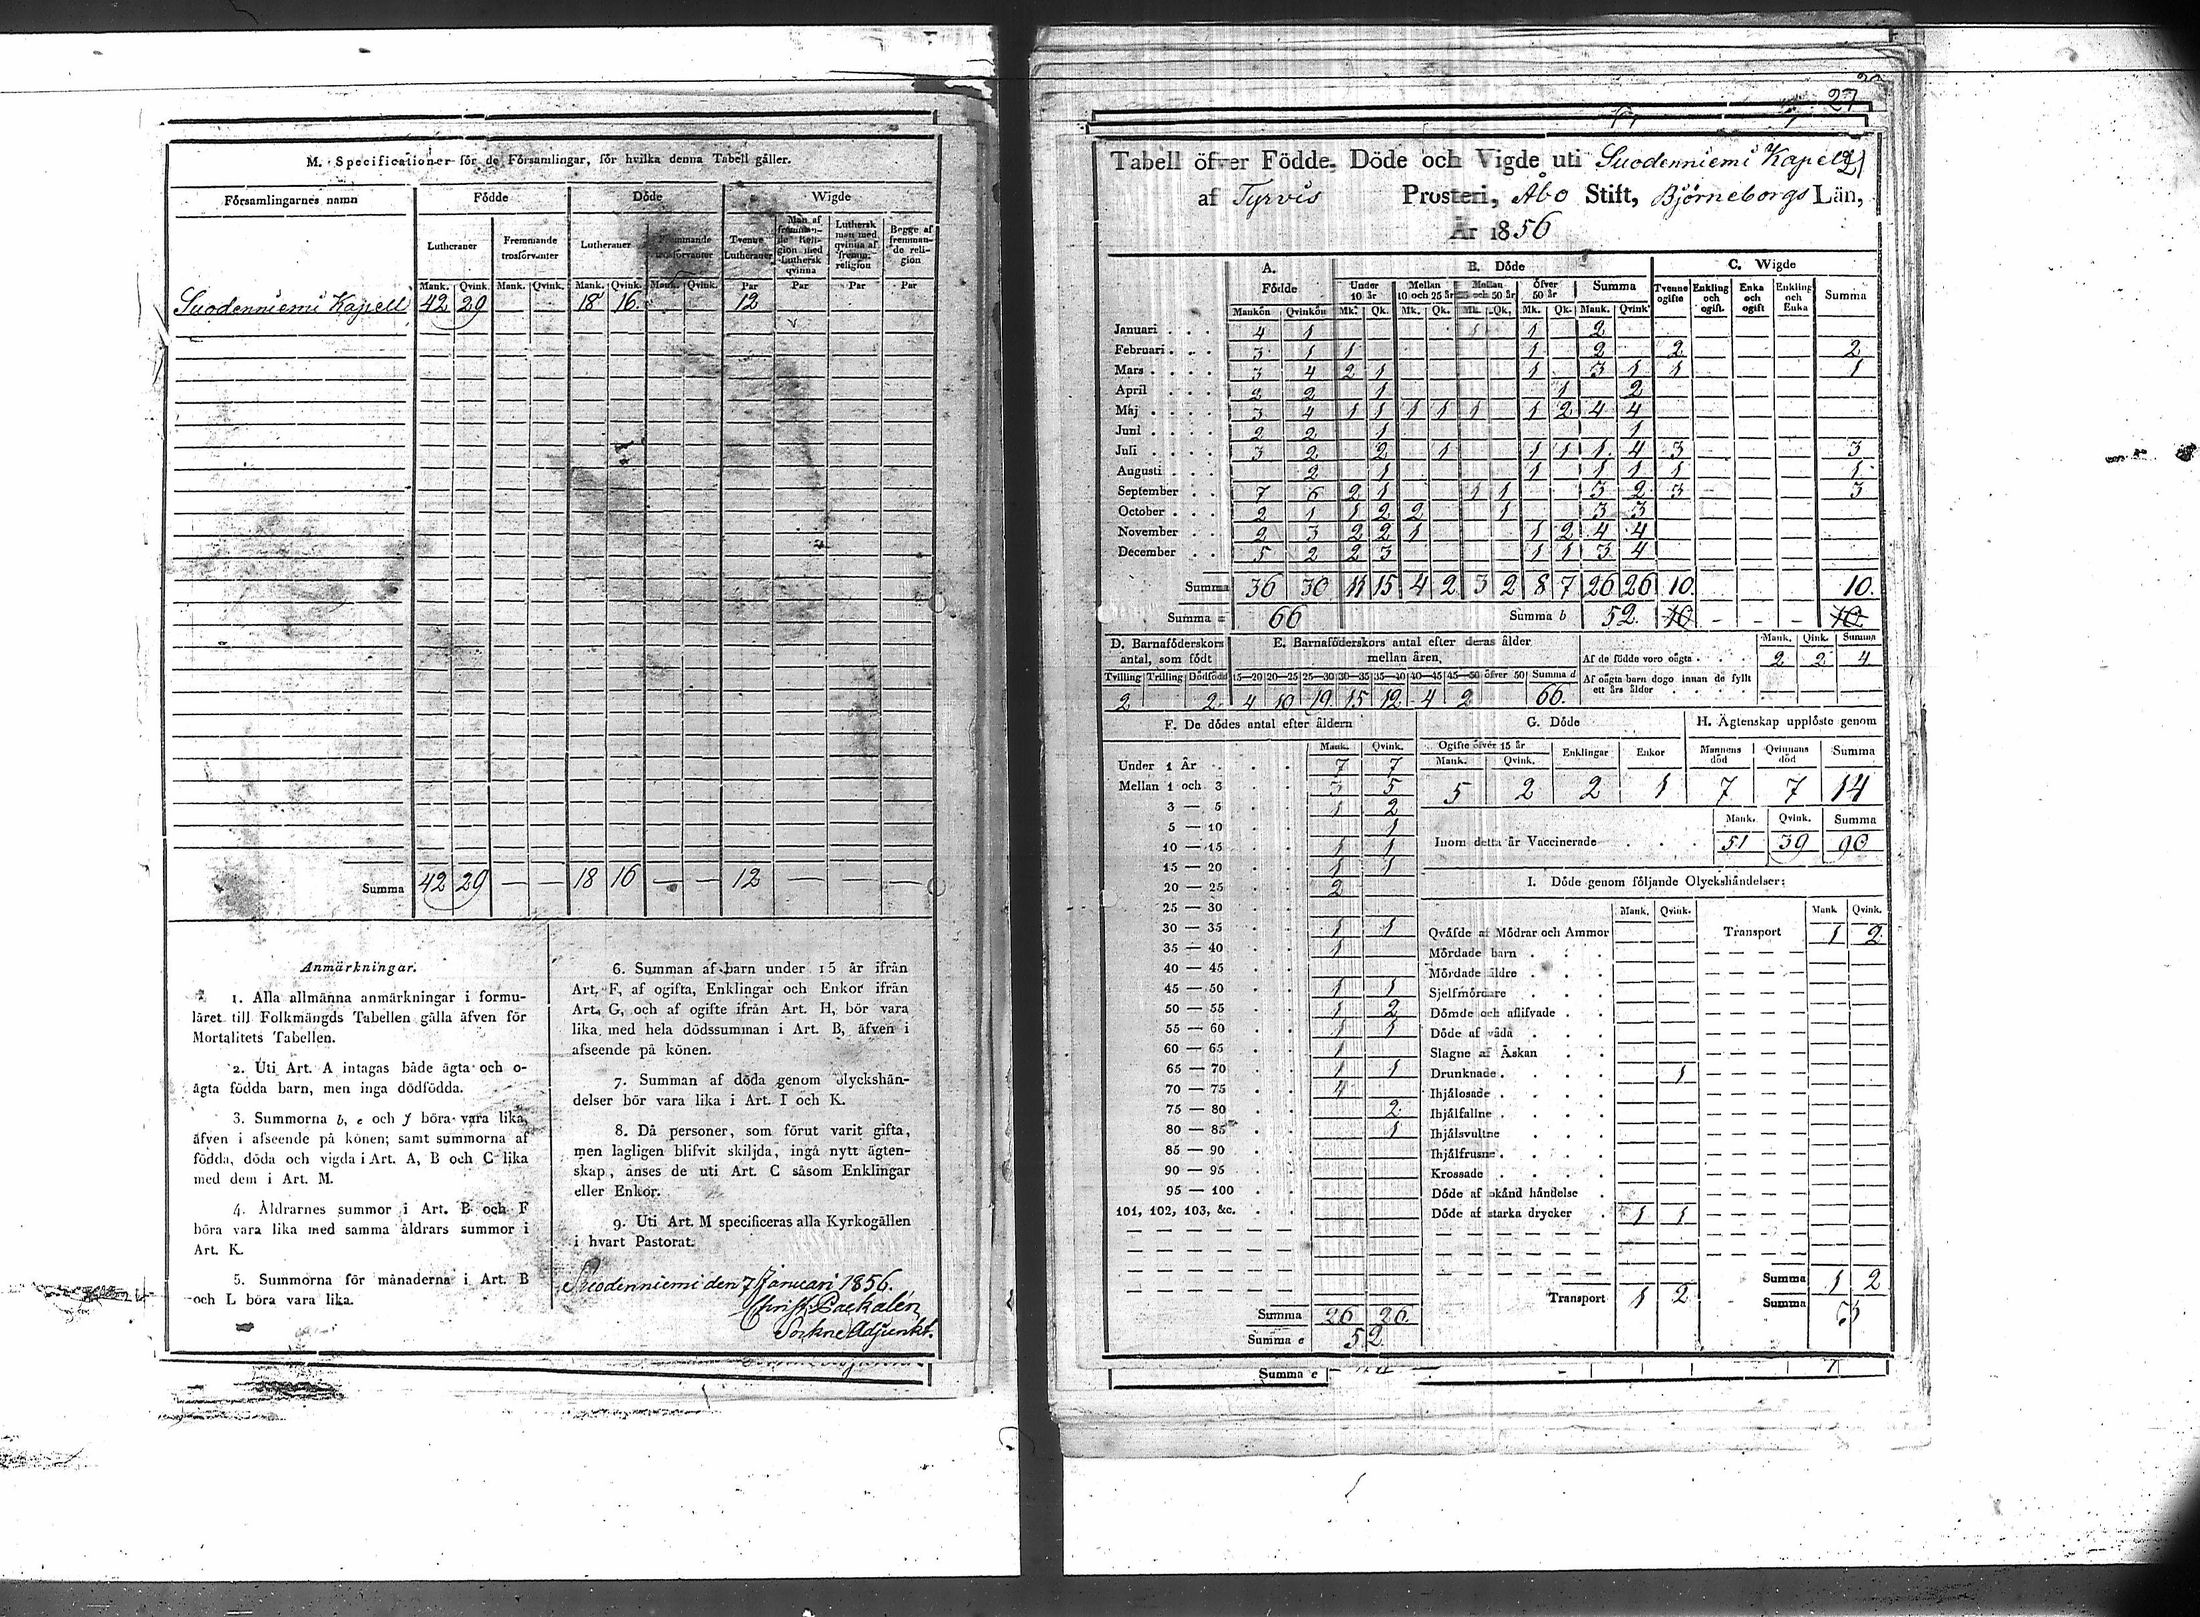 M. Specificationer för de Församlingar, för hvilka denna Tabell gäller.
Församlingarnes namn Födde Döde Wigde
Lutheraner Fremmande trosförvanter Lutheraner Fremmande trosförvanter Tvenne Lutheraner Man af fremmande Religion med Luthersk qvinna Luthersk man med qvinna af fremm. religion Begge af fremmande religion
Mank. Qvink. Mank. Qvink. Mank. Qvink. Mank. Qvink. Par Par Par Par
Suodenniemi Kapell 42 29 — — 18 16 12
Summa 42 29 — — 18 16 — — 12 — — —
Anmärkningar.
1. Alla allmänna anmärkningar i formu-
läret till Folkmängds Tabellen gälla äfven för
Mortalitets Tabellen.
2. Uti Art. A intagas både ägta och o-
ägta födda barn, men inga dödfödda.
3. Summorna b, e och f böra vara lika,
äfven i afseende på könen; samt summorna af
födda, döda och vigda i Art. A, B och C lika
med dem i Art. M.
4. Åldrarnes summor i Art. B och F
böra vara lika med samma åldrars summor i
Art. K.
5. Summorna för månaderna i Art. B
och L böra vara lika.
6. Summan af barn under 15 år ifrån
Art. F, af ogifta, Enklingar och Enkor ifrån
Art. G, och af ogifte ifrån Art. H, bör vara
lika med hela dödssumman i Art. B, äfven i
afseende på könen.
7. Summan af döda genom olyckshän-
delser bör vara lika i Art. I och K.
8. Då personer, som förut varit gifta,
men lagligen blifvit skiljda, ingå nytt ägten-
skap, anses de uti Art. C såsom Enklingar
eller Enkor.
9. Uti Art. M specificeras alla Kyrkogällen
i hvart Pastorat.
Suodenniemi den 7 Januari 1856.
Sockne Adjunkt.
27
Tabell öfver Födde, Döde och Vigde uti Suodenniemi Kapell
af Tyrvis Prosteri, Åbo Stift, Björneborgs Län,
År 1856
A. Födde B. Döde C. Wigde
Under 10 år Mellan 10 och 25 år Mellan 25 och 50 år öfver 50 år Summa Tvenne ogifte Enkling och ogift. Enka och ogift Enkling och Enka Summa
Mankön Qvinkön Mk. Qk. Mk. Qk. Mk. Qk. Mk. Qk. Mank. Qvink.
Januari 4 1 1 1 2
Februari 3 1 1 1 2 2 2
Mars 3 4 2 1 1 3 1 1 1
April 2 2 1 1 2
Maj 3 4 1 1 1 1 1 1 2 4 4
Juni 2 2 1 1
Juli 3 2 2 1 1 1 1 4 3 3
Augusti 2 1 1 1 1 1 1
September 7 6 2 1 1 1 3 2 3 3
October 2 1 1 2 2 1 3 3
November 2 3 2 2 1 1 2 4 4
December 5 2 2 3 1 1 3 4
Summa 36 30 11 15 4 2 3 2 8 7 26 26 10. — — — 10.
Summa a 66 Summa b 52. 10 — — — 10
D. Barnaföderskors antal, som födt
Tvilling Trilling Dödfödd
2 2.
E. Barnaföderskors antal efter deras ålder mellan åren.
15—20 20—25 25—30 30—35 35—40 40—45 45—50 öfver 50 Summa d
4 10 19 15 12 4 2 66.
Mank. Qink. Summa
Af de födde voro oägta 2 2 4
Af oägta barn dogo innan de fyllt ett års ålder
F. De dödes antal efter åldern
Mank. Qvink.
Under 1 År 7 7
Mellan 1 och 3 3 5
3 — 5 1 2
5 — 10 1
10 — 15 1 1
15 — 20 1 1
20 — 25 2
25 — 30
30 — 35 1 1
35 — 40 1
40 — 45
45 — 50 1 1
50 — 55 1 2
55 — 60 1 1
60 — 65 1
65 — 70 1 1
70 — 75 4
75 — 80 2
80 — 85 1
85 — 90
90 — 95
95 — 100
101, 102, 103, &c.
Summa 26 26.
Summa e 52
G. Döde
Ogifte öfver 15 år Enklingar Enkor
Mank. Qvink.
5 2 2 1
H. Ägtenskap upplöste genom
Mannens död Qvinnans död Summa
7 7 14
Mank. Qvink. Summa
Inom detta år Vaccinerade 51 39 90
I. Döde genom följande Olyckshändelser:
Mank. Qvink. Mank Qvink.
Qväfde af Mödrar och Ammor Transport 1 2
Mördade barn
Mördade äldre
Sjelfmördare
Dömde och aflifvade
Döde af våda
Slagne af Åskan
Drunknade 1
Ihjälosade
Ihjälfallne
Ihjälsvultne
Ihjälfrusne
Krossade
Döde af okänd händelse
Döde af starka drycker 1 1
Transport 1 2
Summa 1 2
Summa 3
Summa e